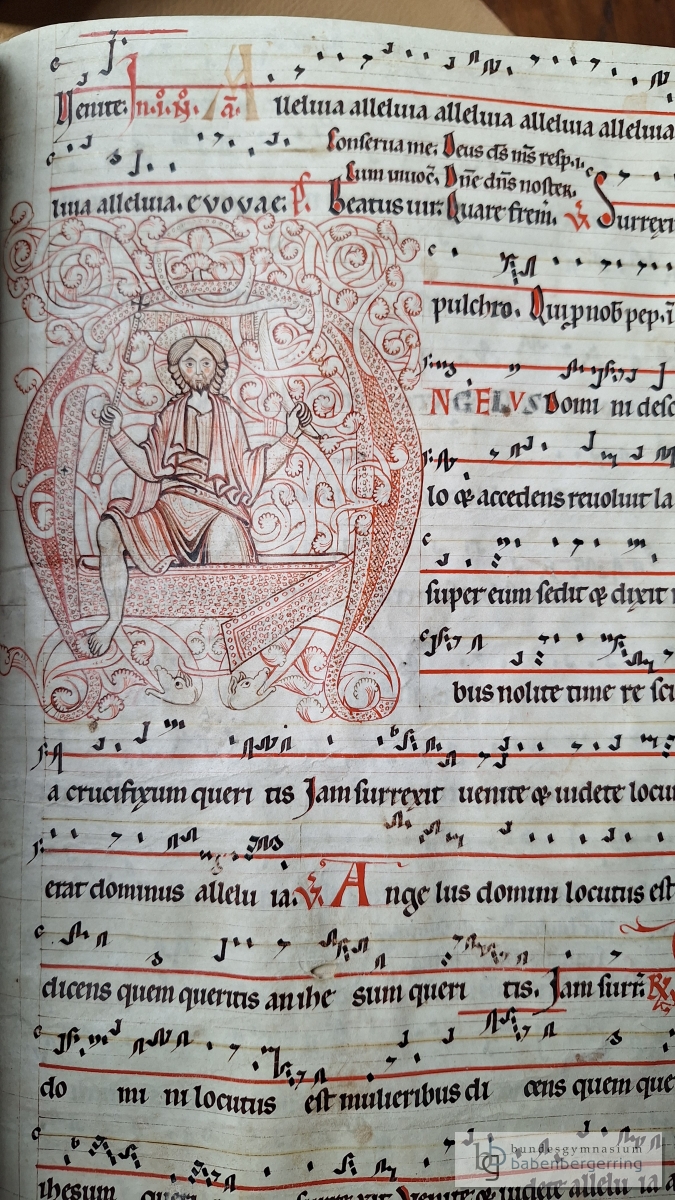 Venite. In .i. N̊. a̅. Alleluia alleluia alleluia alleluia alleluia
Conserua me. Deus ds̅ ms̅ resp.
luia alleluia. evovae. ps.
Cum inuoc̅. Dn̅e dn̅s noster.
Beatus uir. Quare frem̅. V̅. Surrexit
pulchro. Qui p nob̅ pep. i
ANGELVS Domi ni desc
lo & accedens reuoluit la
super eum sedit & dixit
bus nolite time re sci
a crucifixum queri tis Jam surrexit uenite & uidete locu
erat dominus allelu ia. V̅. Ange lus domini locutus est
dicens quem queritis an ihe sum queri tis. Jam surr̅. R̅
do mi ni locutus est mulieribus di cens quem que
ihesum queri surrexit Venite & uidete allelu ia a
bundesgymnasium
babenbergerring